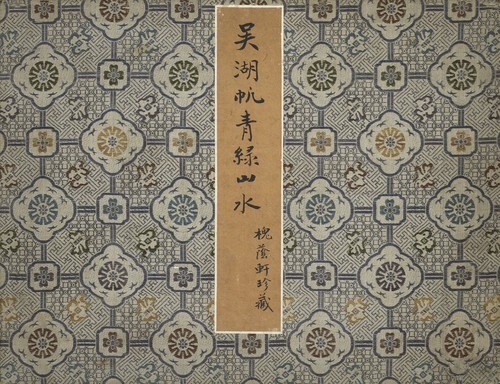 吴湖帆青綠山水
槐蔭軒珍藏